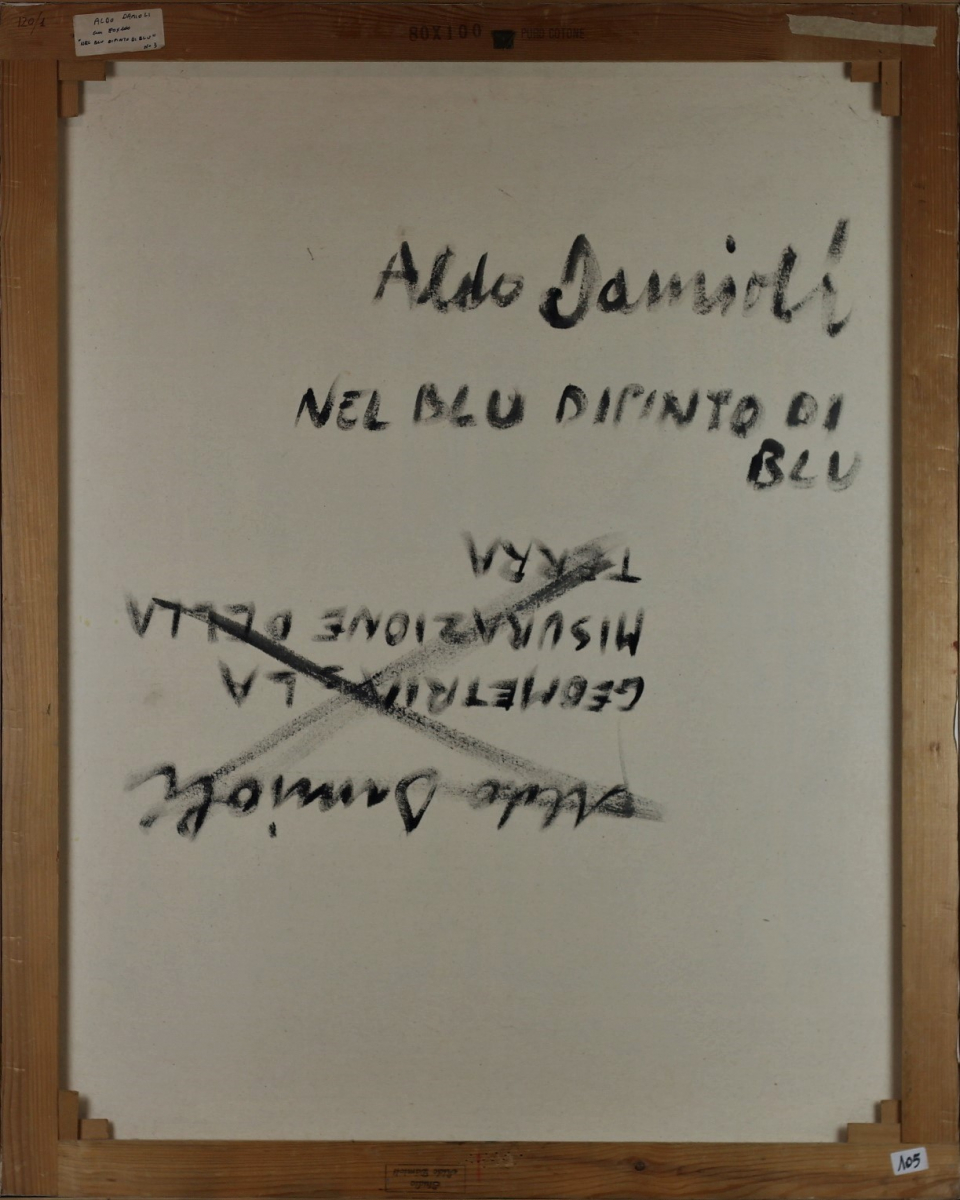 120/1
ALDO DAMIOLI
cm 80x100
"NEL BLU DIPINTO DI BLU"
N° 3
80X100 PURO COTONE
Aldo Damioli
NEL BLU DIPINTO DI
BLU
Aldo Damioli
GEOMETRIA LA
MISURAZIONE DELLA
TERRA
105